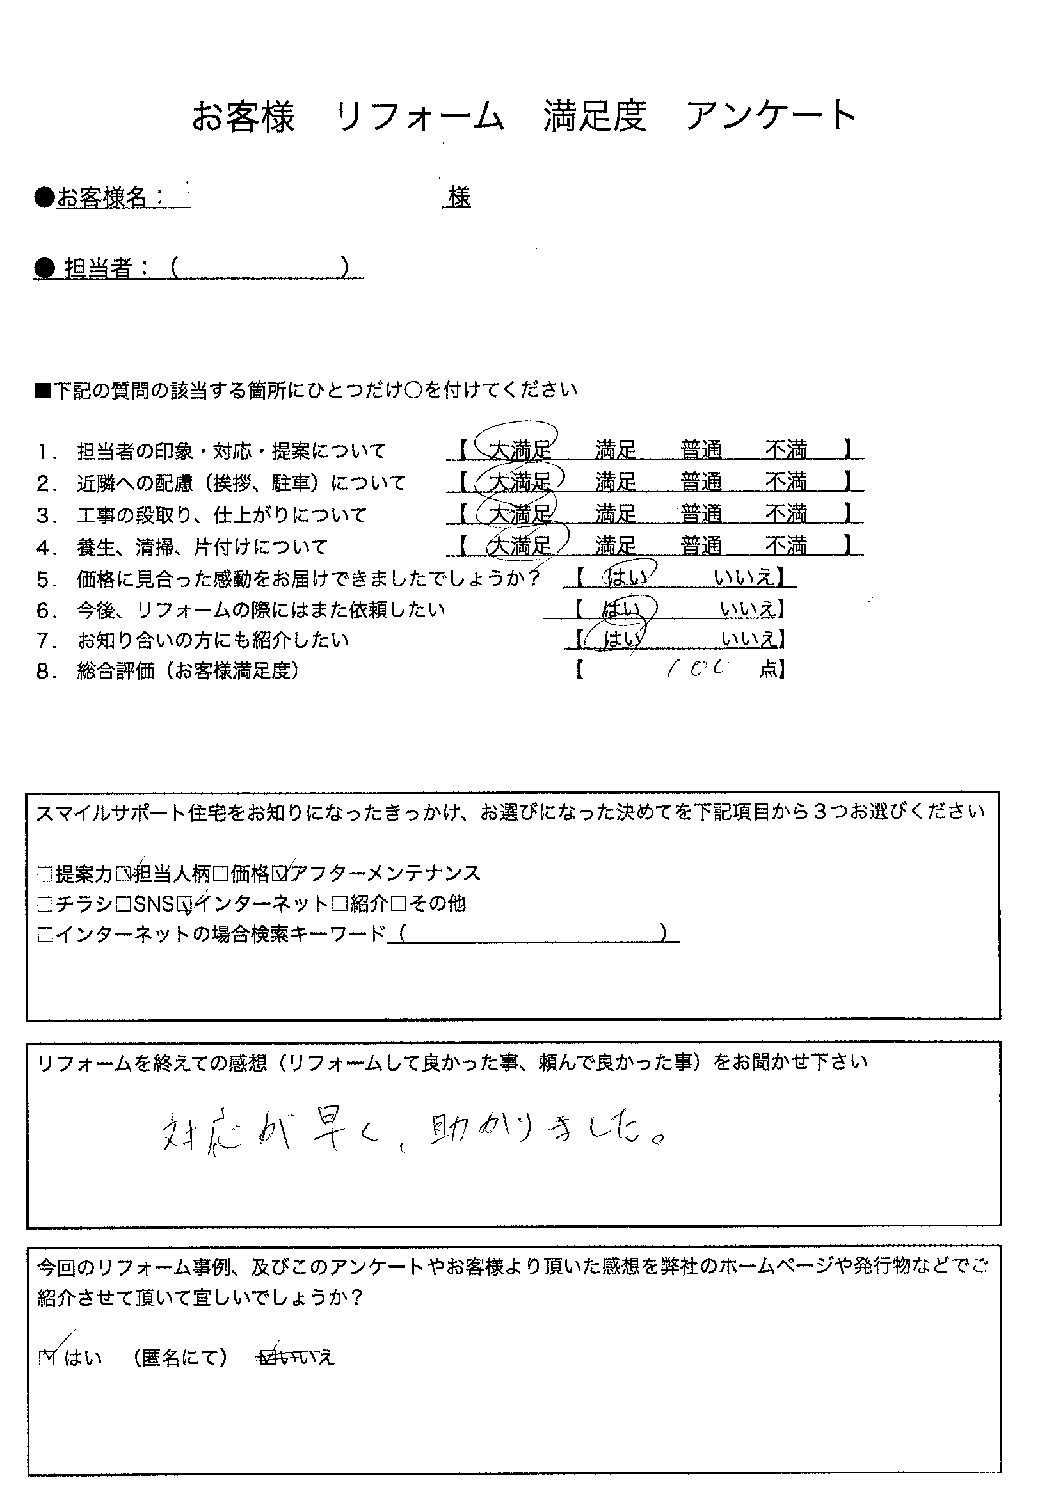 お客様　リフォーム　満足度　アンケート
●お客様名：　　　　　様
●担当者：（　　　　　　）
■下記の質問の該当する箇所にひとつだけ〇を付けてください
1．担当者の印象・対応・提案について　【　大満足　満足　普通　不満　】
2．近隣への配慮（挨拶、駐車）について　【　大満足　満足　普通　不満　】
3．工事の段取り、仕上がりについて　【　大満足　満足　普通　不満　】
4．養生、清掃、片付けについて　【　大満足　満足　普通　不満　】
5．価格に見合った感動をお届けできましたでしょうか？　【　はい　いいえ】
6．今後、リフォームの際にはまた依頼したい　【　はい　いいえ】
7．お知り合いの方にも紹介したい　【　はい　いいえ】
8．総合評価（お客様満足度）　【　100　点】
スマイルサポート住宅をお知りになったきっかけ、お選びになった決めてを下記項目から３つお選びください
□提案力☑担当人柄□価格☑アフターメンテナンス
□チラシ□SNS☑インターネット□紹介□その他
□インターネットの場合検索キーワード（　　　　　　）
リフォームを終えての感想（リフォームして良かった事、頼んで良かった事）をお聞かせ下さい
対応が早く、助かりました。
今回のリフォーム事例、及びこのアンケートやお客様より頂いた感想を弊社のホームページや発行物などでご
紹介させて頂いて宜しいでしょうか？
☑はい　（匿名にて）　☑いいえ